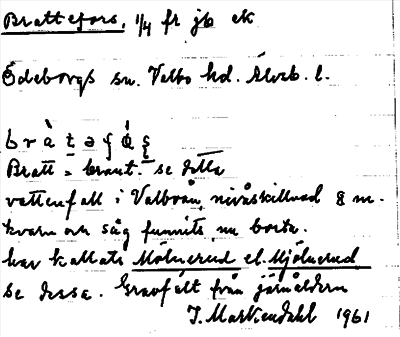 Brattefors, 1/4 fr jb ek
Ödeborgs sn. Valbo hd. Älvsb. l.
Bratt = brant. se detta
vattenfall i Valboån, nivåskillnad 8 m.
kvarn och såg funnits, nu borta.
har kallats Mölnerud el. Mjölnerud
se dessa. Gravfält från järnåldern
J. Markendahl 1961